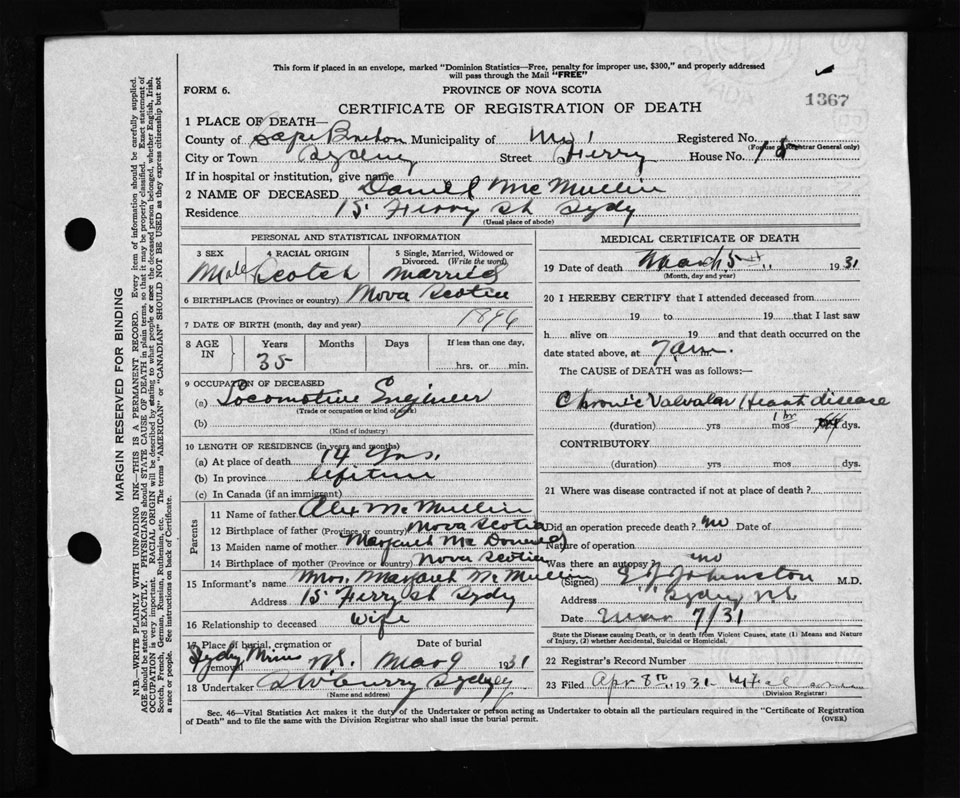 This form if placed in an envelope, marked "Dominion Statistics—Free, penalty for improper use, $300," and properly addressed
will pass through the Mail "FREE"
FORM 6.
PROVINCE OF NOVA SCOTIA
1367
CERTIFICATE OF REGISTRATION OF DEATH
1 PLACE OF DEATH—
County of Cape Breton Municipality of Registered No.
(For use of Registrar General only)
City or Town Sydney Street Ferry House No. 15
If in hospital or institution, give name
2 NAME OF DECEASED Daniel McMullin
Residence 15 Ferry St Sydy
(Usual place of abode)
PERSONAL AND STATISTICAL INFORMATION
3 SEX 4 RACIAL ORIGIN 5 Single, Married, Widowed or Divorced. (Write the word)
Male Scotch Married
6 BIRTHPLACE (Province or country) Nova Scotia
7 DATE OF BIRTH (month, day and year) 1896
8 AGE IN Years Months Days If less than one day,
35 hrs. or min.
9 OCCUPATION OF DECEASED
(a) Locomotive Engineer
(Trade or occupation or kind of work)
(b)
(Kind of industry)
10 LENGTH OF RESIDENCE (in years and months)
(a) At place of death 14 yrs.
(b) In province lifetime
(c) In Canada (if an immigrant)
Parents
11 Name of father Alex McMullin
12 Birthplace of father (Province or country) Nova Scotia
13 Maiden name of mother Margaret McDonald
14 Birthplace of mother (Province or country) Nova Scotia
15 Informant's name Mrs. Margaret McMullin
Address 15 Ferry St Sydy
16 Relationship to deceased Wife
17 Place of burial, cremation or removal Date of burial
Sydy Mines NS. Mar 9 1931
18 Undertaker Curry Sydney
(Name and address)
MEDICAL CERTIFICATE OF DEATH
19 Date of death March 5th 1931
(Month, day and year)
20 I HEREBY CERTIFY that I attended deceased from
19 to 19 that I last saw
h alive on 19 and that death occurred on the
date stated above, at 7 am. m.
The CAUSE of DEATH was as follows:—
Chronic Valvular Heart disease
(duration) yrs mos dys.
1 hr
CONTRIBUTORY
(duration) yrs mos. dys.
21 Where was disease contracted if not at place of death?
Did an operation precede death? no Date of
Nature of operation
Was there an autopsy? no
(Signed) E J Johnston M.D.
Address Sydney NS
Date Mar 7/31
State the Disease causing Death, or in death from Violent Causes, state (1) Means and Nature
of Injury, (2) whether Accidental, Suicidal or Homicidal.
22 Registrar's Record Number
23 Filed Apr 8th 1931
(Division Registrar)
Sec. 46—Vital Statistics Act makes it the duty of the Undertaker or person acting as Undertaker to obtain all the particulars required in the "Certificate of Registration
of Death" and to file the same with the Division Registrar who shall issue the burial permit.
(OVER)
MARGIN RESERVED FOR BINDING
N.B.—WRITE PLAINLY WITH UNFADING INK—THIS IS A PERMANENT RECORD. Every item of information should be carefully supplied.
AGE should be stated EXACTLY. PHYSICIANS should STATE CAUSE OF DEATH in plain terms, so that it may be properly classified. Exact statement of
OCCUPATION is very important. RACIAL ORIGIN will be described by stating to what people or race the deceased person belonged, whether English, Irish,
Scotch, French, German, Russian, Ruthenian, etc. The terms "AMERICAN" or "CANADIAN" SHOULD NOT BE USED as they express citizenship but not
a race or people. See instructions on back of Certificate.